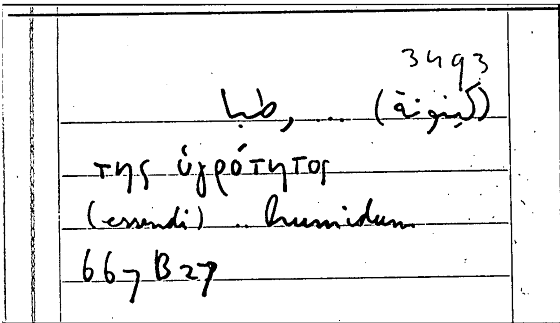 3493
(كينونة) ... رطبا
της ὑγρότητος
(essendi) .. humidum
667 B 27